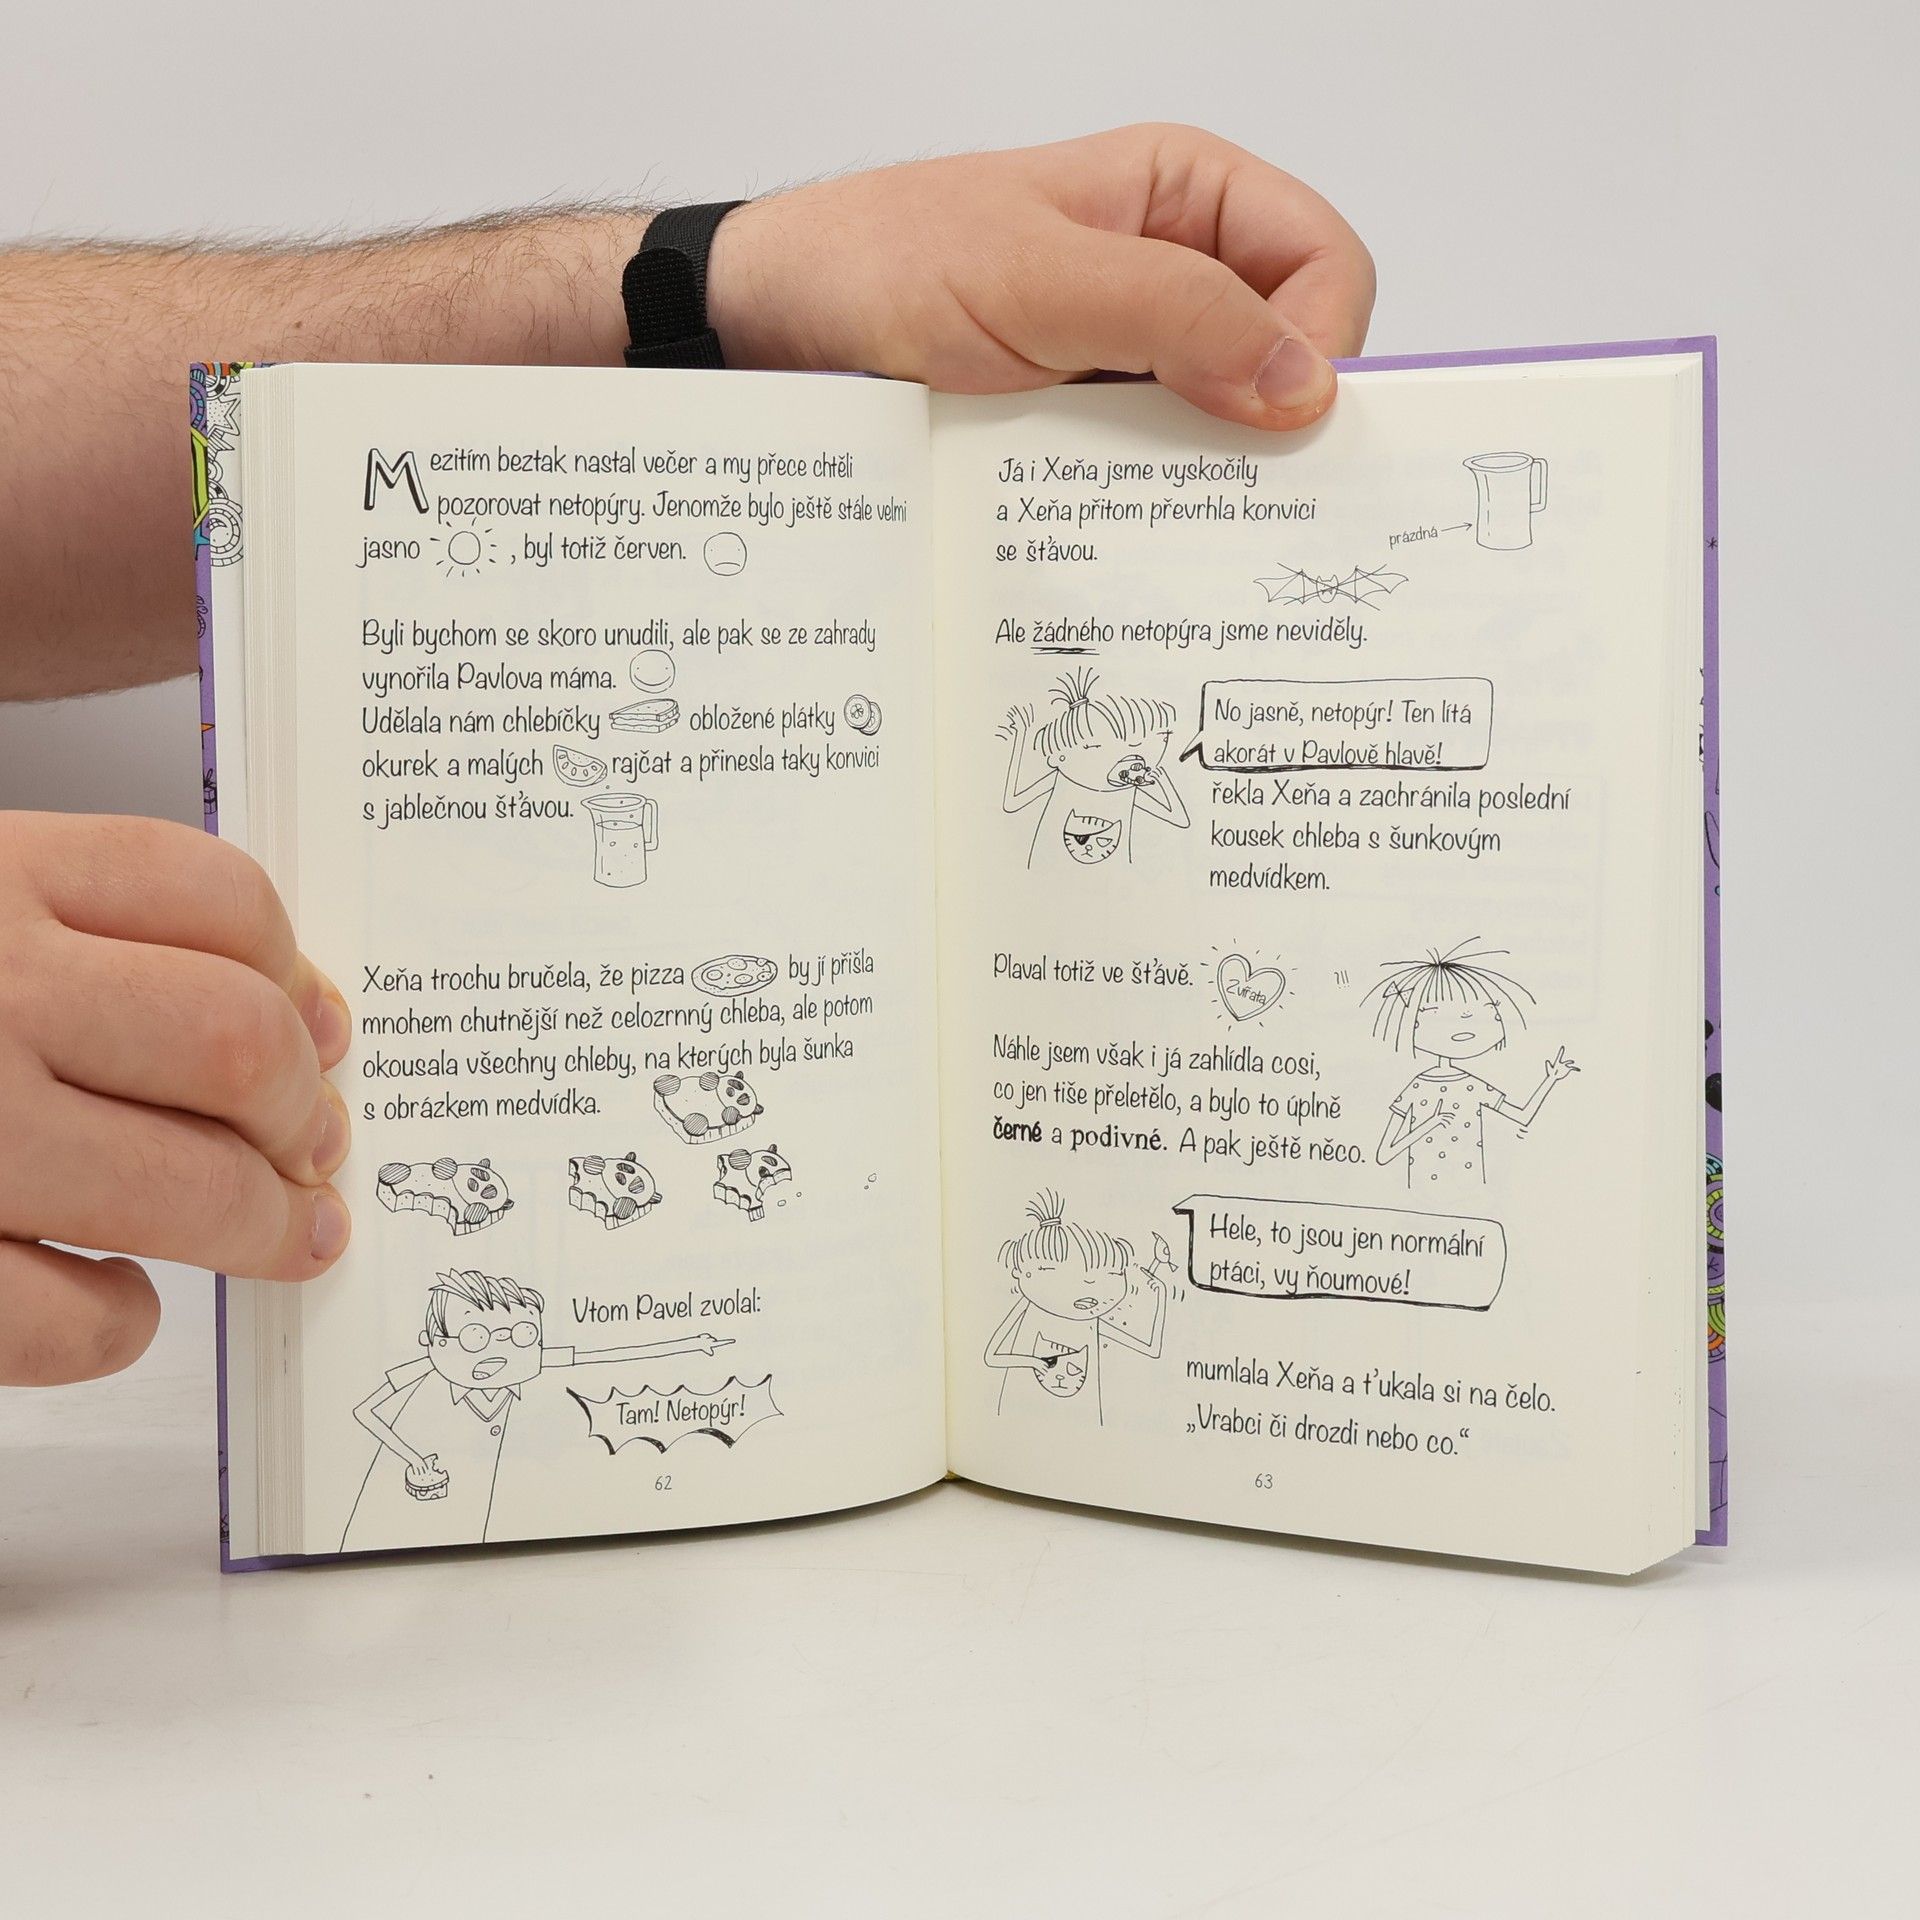 Mezitím beztak nastal večer a my přece chtěli
pozorovat netopýry. Jenomže bylo ještě stále velmi
jasno , byl totiž červen.
Byli bychom se skoro unudili, ale pak se ze zahrady
vynořila Pavlova máma.
Udělala nám chlebíčky obložené plátky
okurek a malých rajčat a přinesla taky konvici
s jablečnou šťávou.
Xeňa trochu bručela, že pizza by jí přišla
mnohem chutnější než celozrnný chleba, ale potom
okousala všechny chleby, na kterých byla šunka
s obrázkem medvídka.
Vtom Pavel zvolal:
Tam! Netopýr!
62
Já i Xeňa jsme vyskočily
a Xeňa přitom převrhla konvici
se šťávou.
prázdná
Ale žádného netopýra jsme neviděly.
No jasně, netopýr! Ten lítá
akorát v Pavlově hlavě!
řekla Xeňa a zachránila poslední
kousek chleba s šunkovým
medvídkem.
Plaval totiž ve šťávě.
Zvířata
?!!
Náhle jsem však i já zahlídla cosi,
co jen tiše přeletělo, a bylo to úplně
černé a podivné. A pak ještě něco.
Hele, to jsou jen normální
ptáci, vy ňoumové!
mumlala Xeňa a ťukala si na čelo.
„Vrabci či drozdi nebo co.“
63